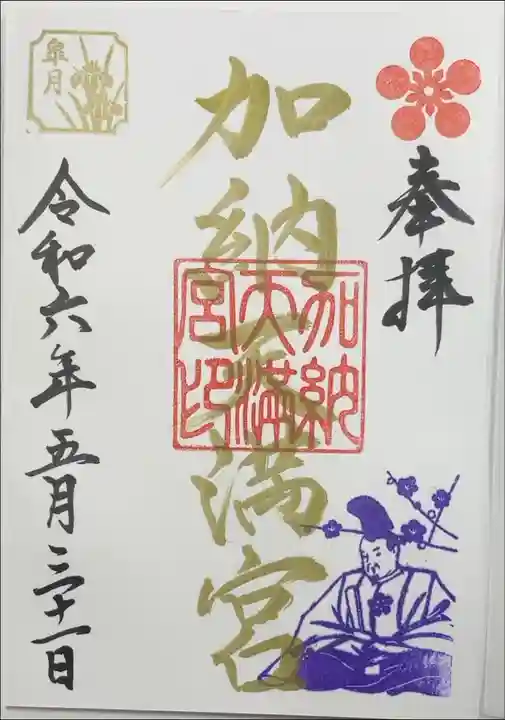 奉拝
加納天満宮
加納
天満
宮印
皐月
令和六年五月三十一日